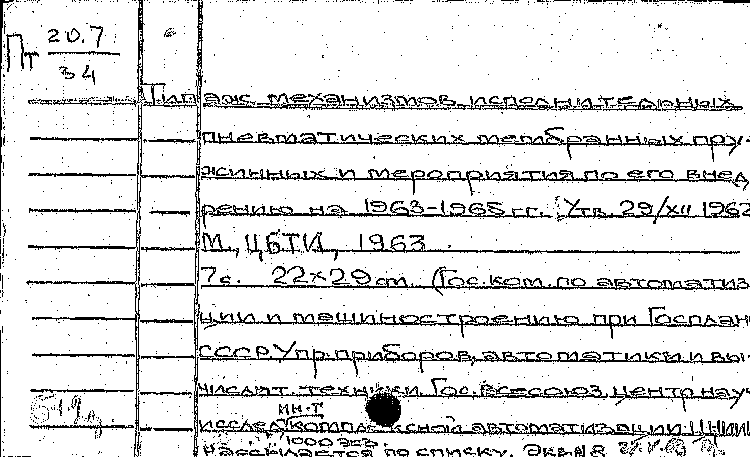 Пт 20.7
34
Типаж механизмов исполнительных
пневматических мембранных пру-
жинных и мероприятия по его внед
рению на 1963-1965 гг. Утв. 29/XII 1962
М., ЦБТИ, 1963
7с. 22×29 см. (Гос. ком. по автоматиз
ции и машиностроению при Госплан
СССР. Упр. приборов, автоматики и вы-
числит. техники Гос. всесоюз. центр. науч
ин-т
исслед. комплексной автоматизации ЦНИИ
1000 экз.
рассылается по списку. Экв №8